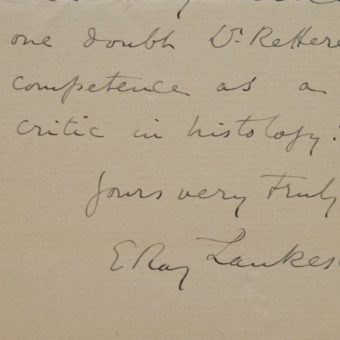 one doubt Dr. Rettere
competence as a
critic in histology?
Yours very truly
E Ray Lankes